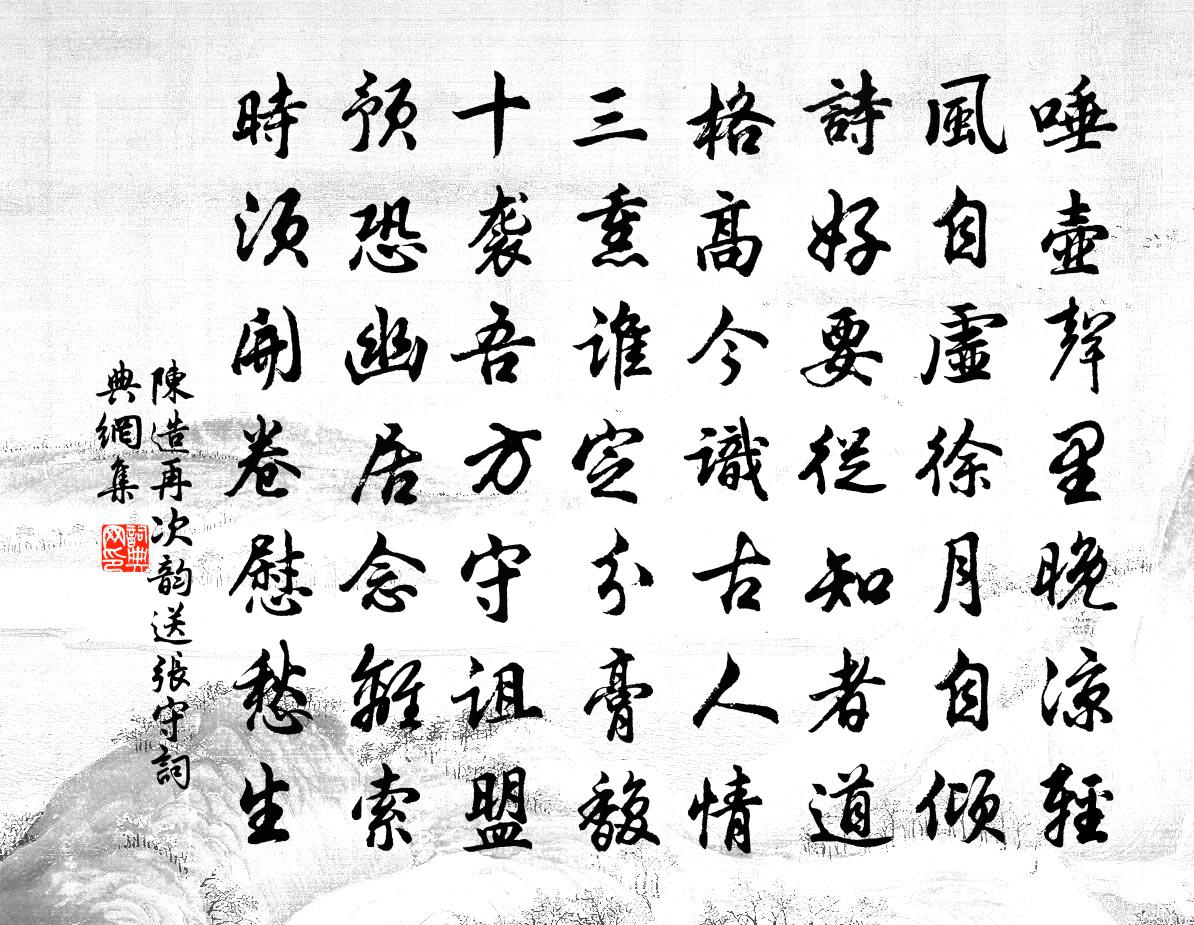 唾壺聲里晚涼輕
風自虛徐月自傾
詩好要從知者道
格高今識古人情
三熏誰定分膏馥
十襲吾方守詛盟
預恐幽居念離索
時須開卷慰愁生
陳造再次韵送張守詞
典網集
詞典
网印